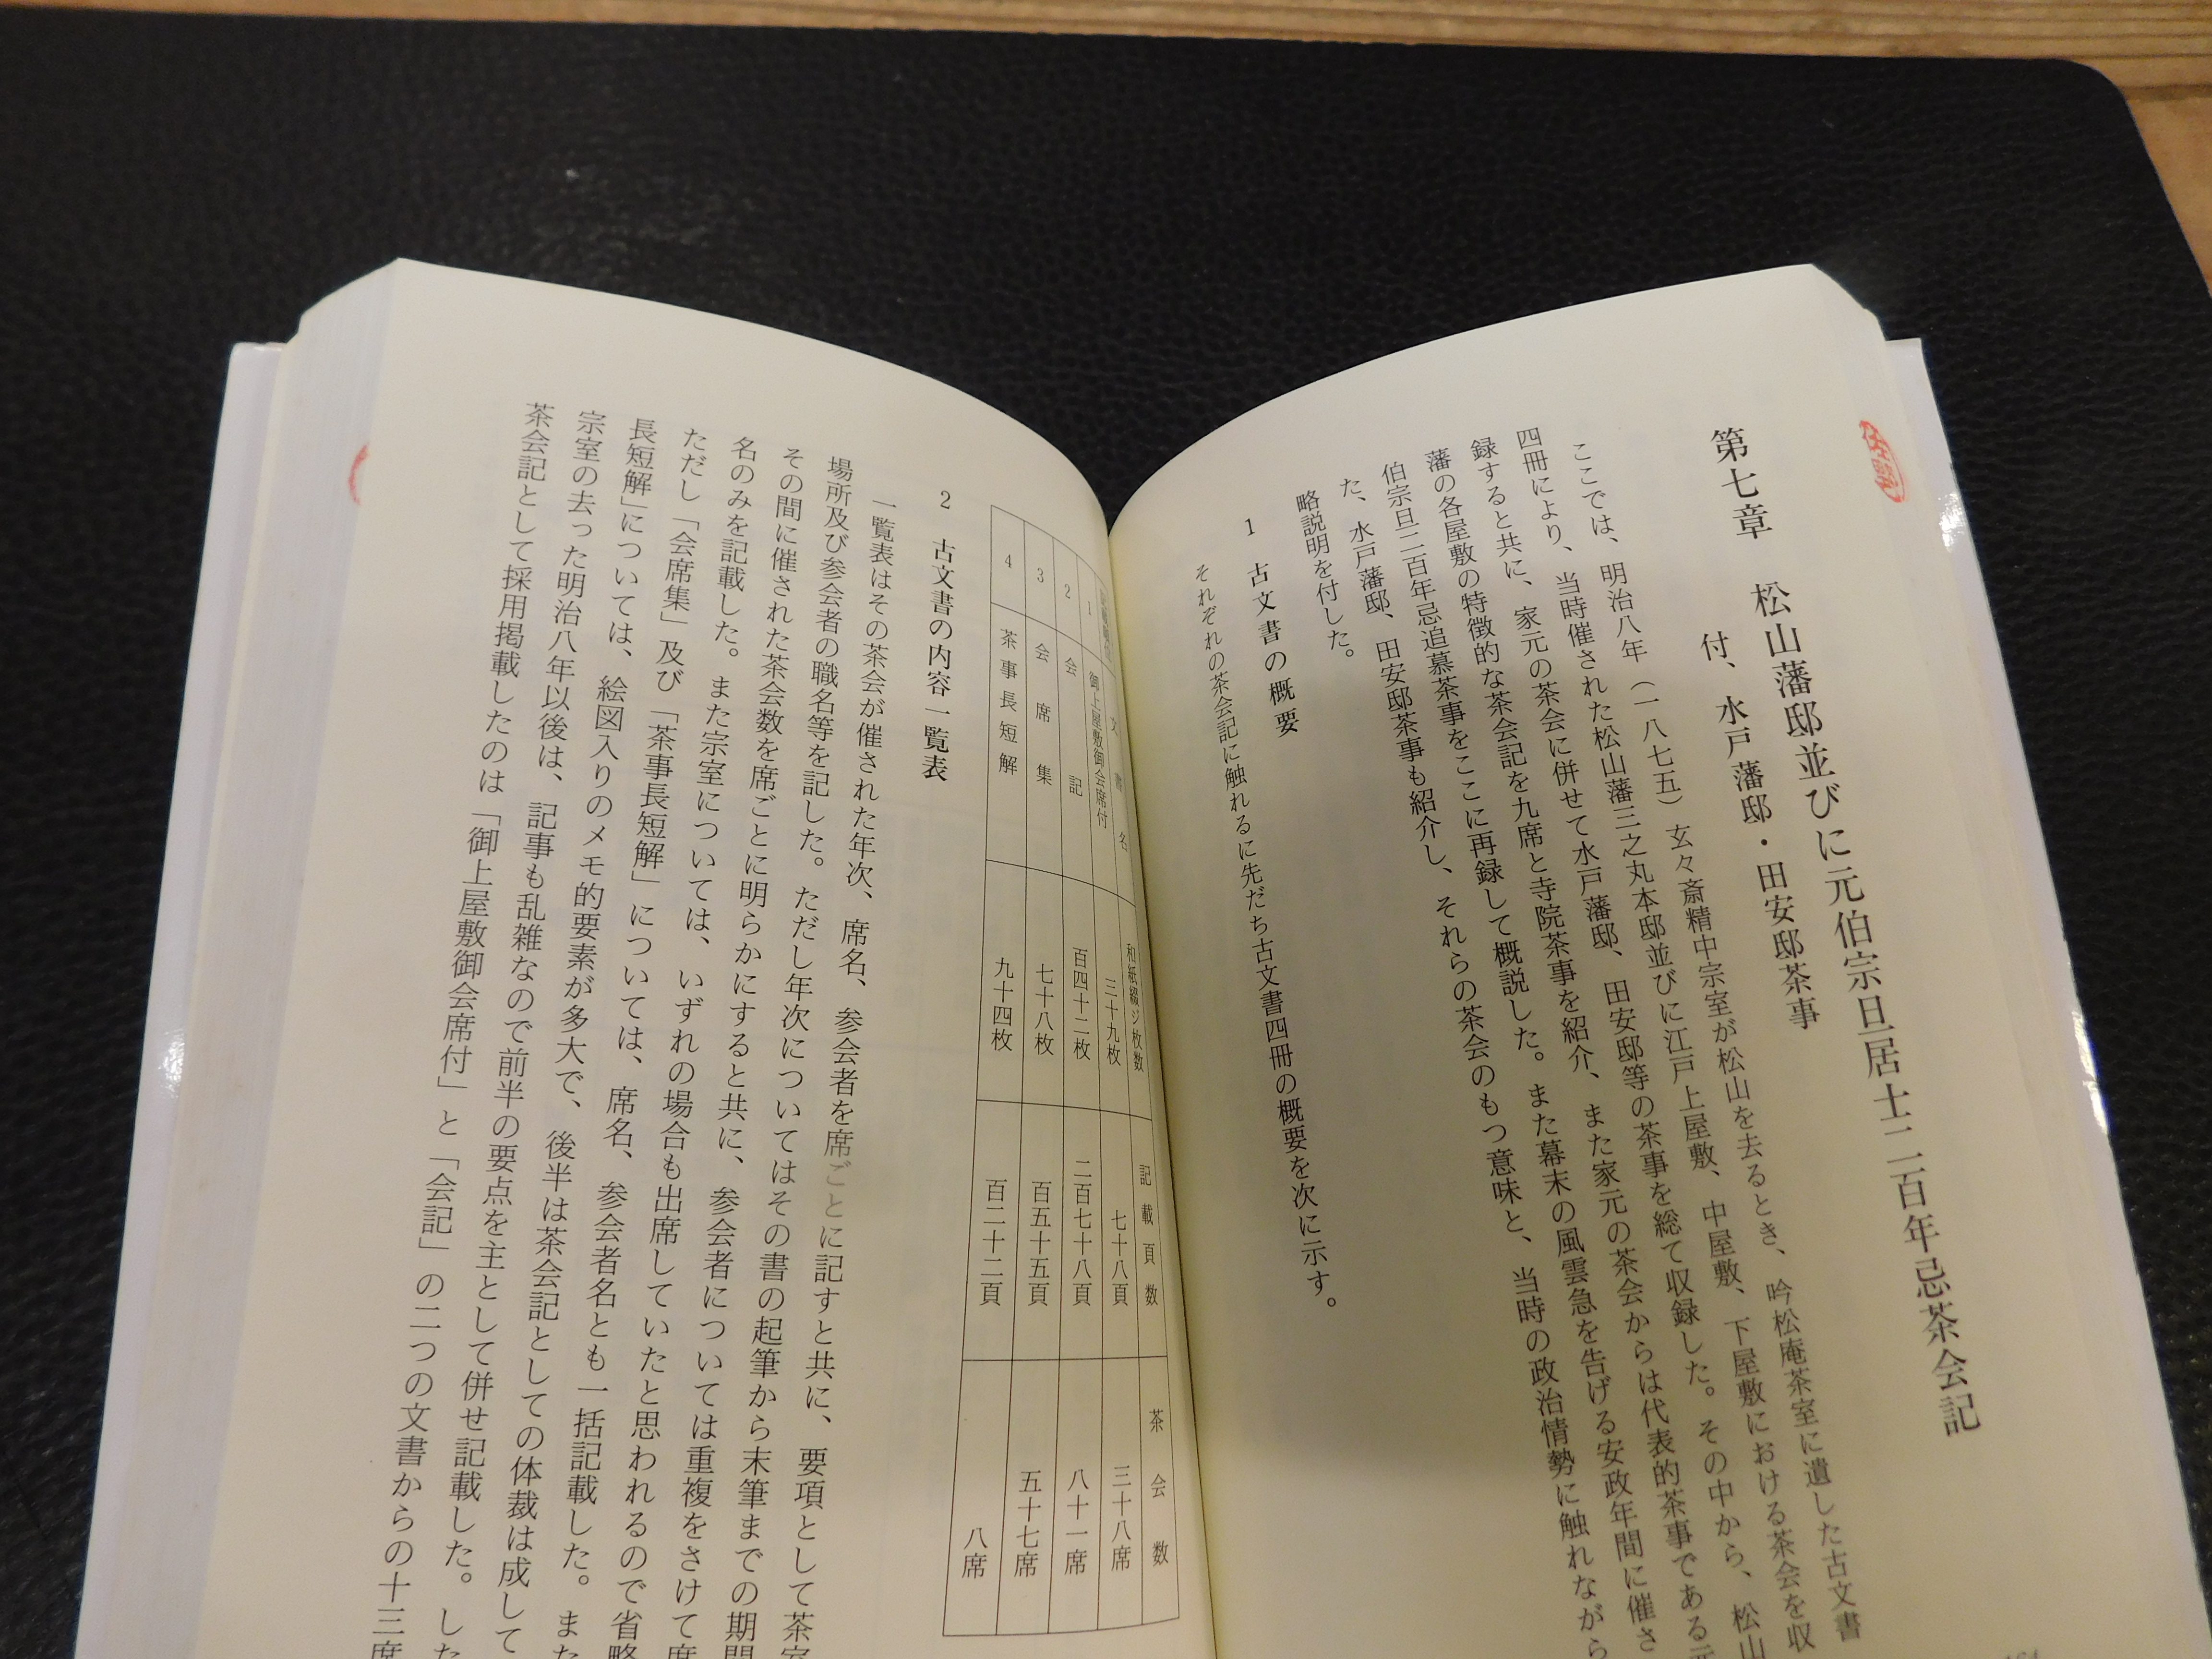 第七章　松山藩邸並びに元伯宗旦居士二百年忌茶会記
付、水戸藩邸・田安邸茶事
ここでは、明治八年（一八七五）玄々斎精中宗室が松山を去るとき、吟松庵茶室に遺した古文書
四冊により、当時催された松山藩三之丸本邸並びに江戸上屋敷、中屋敷、下屋敷における茶会を収
録すると共に、家元の茶会に併せて水戸藩邸、田安邸等の茶事を総て収録した。その中から、松山
藩の各屋敷の特徴的な茶会記を九席と寺院茶事を紹介、また家元の茶会からは代表的茶事である元
伯宗旦二百年忌追慕茶事をここに再録して概説した。また幕末の風雲急を告げる安政年間に催さ
た、水戸藩邸、田安邸茶事も紹介し、それらの茶会のもつ意味と、当時の政治情勢に触れながら
略説明を付した。
1　古文書の概要
それぞれの茶会記に触れるに先だち古文書四冊の概要を次に示す。
文書名　和紙綴ジ枚数　記載頁数　茶会数
1　御上屋敷御会席付　三十九枚　七十八頁　三十八席
2　会記　百四十二枚　二百七十八頁　八十一席
3　会席集　七十八枚　百五十五頁　五十七席
4　茶事長短解　九十四枚　百二十二頁　八席
2　古文書の内容一覧表
一覧表はその茶会が催された年次、席名、参会者を席ごとに記すと共に、要項として茶室
場所及び参会者の職名等を記した。ただし年次についてはその書の起筆から末筆までの期間
その間に催された茶会数を席ごとに明らかにすると共に、参会者については重複をさけて席
名のみを記載した。また宗室については、いずれの場合も出席していたと思われるので省略
ただし「会席集」及び「茶事長短解」については、席名、参会者名とも一括記載した。また
長短解」については、絵図入りのメモ的要素が多大で、後半は茶会記としての体裁は成して
宗室の去った明治八年以後は、記事も乱雑なので前半の要点を主として併せ記載した。した
茶会記として採用掲載したのは「御上屋敷御会席付」と「会記」の二つの文書からの十三席